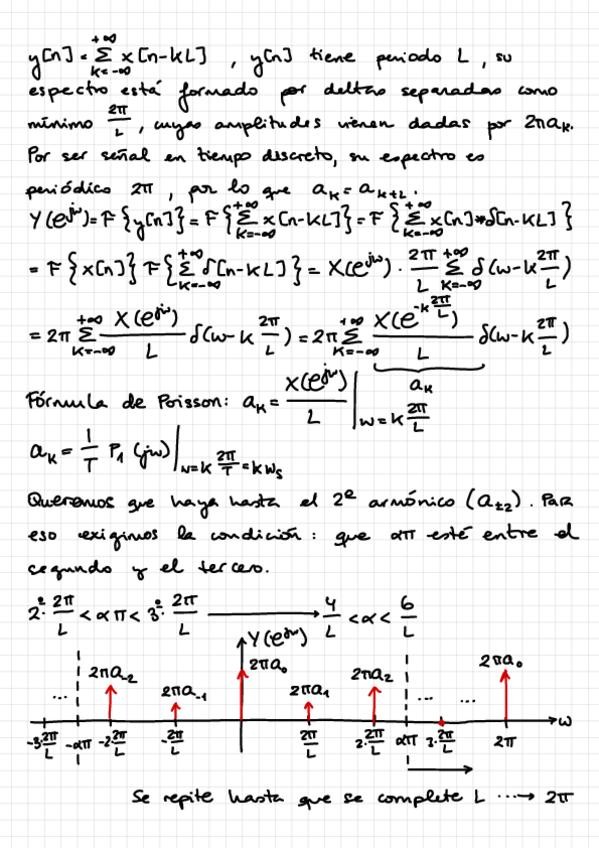 y[n] = Σ_{k=-∞}^{+∞} x[n-kL] , y[n] tiene periodo L, su
espectro está formado por deltas separadas como
mínimo 2π/L, cuyas amplitudes vienen dadas por 2πa_k.
Por ser señal en tiempo discreto, su espectro es
periódico 2π, por lo que a_k = a_{k+L}.
Y(e^{jω}) = F{y[n]} = F{Σ_{k=-∞}^{+∞} x[n-kL]} = F{Σ_{k=-∞}^{+∞} x[n]*δ[n-kL]}
= F{x[n]} F{Σ_{k=-∞}^{+∞} δ[n-kL]} = X(e^{jω}) · 2π/L Σ_{k=-∞}^{+∞} δ(ω-k 2π/L)
= 2π Σ_{k=-∞}^{+∞} X(e^{jω})/L δ(ω-k 2π/L) = 2π Σ_{k=-∞}^{+∞} X(e^{-k 2π/L})/L δ(ω-k 2π/L)
a_k
Fórmula de Poisson: a_k = X(e^{jω})/L |_{ω=k 2π/L}
a_k = 1/T P_1(jω) |_{ω=k 2π/T = kω_s}
Queremos que haya hasta el 2º armónico (a_{±2}). Para
eso exigimos la condición: que απ esté entre el
segundo y el tercero.
2· 2π/L < απ < 3· 2π/L → 4/L < α < 6/L
Y(e^{jω})
2πa_{-2} 2πa_{-1} 2πa_0 2πa_1 2πa_2 2πa_0
... ... ...
-3·2π/L -απ -2·2π/L -2π/L 2π/L 2·2π/L απ 3·2π/L 2π ω
Se repite hasta que se complete L ⋯→ 2π